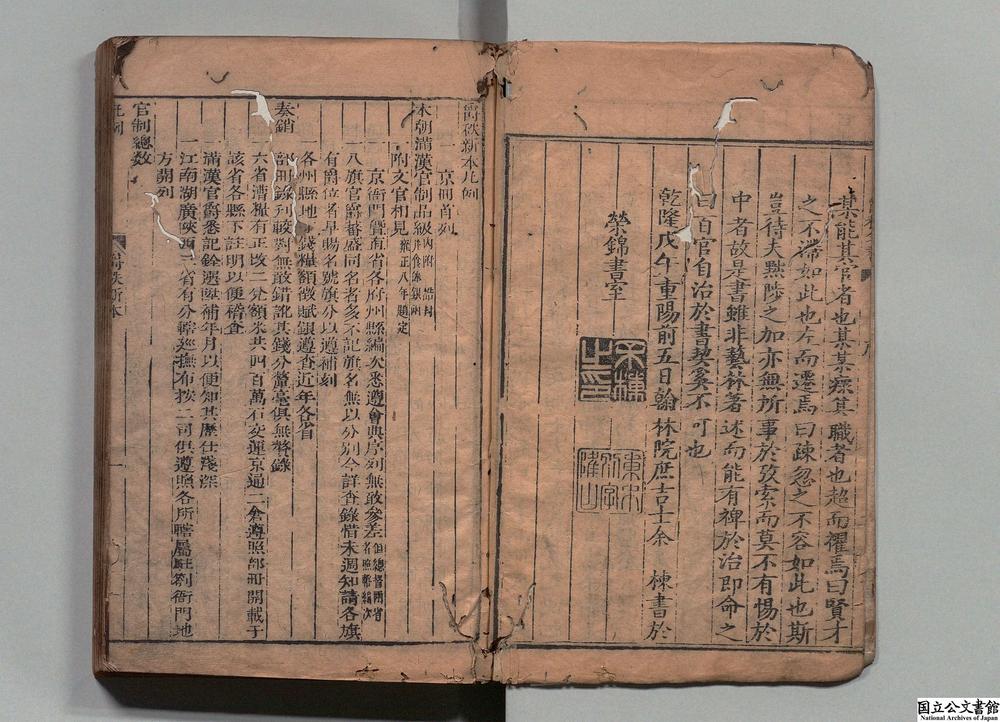 某能其官者也某某瘝其職者也超而擢焉曰賢才
之不滯如此也左而遷焉曰疎忽之不容如此也斯
豈待大黜陟之加亦無所事於攷索而莫不有惕於
中者故是書雖非藝林著述而能有裨於治即命之
曰百官自治於書契奚不可也
乾隆戊午重陽前五日翰林院庶吉士余 棟書於
榮錦書室
爵秩新本凡例
一京冊首列
本朝滿漢官制品級
附文官相見 雍正八年題定
一京衙門曁直省各府州縣編次悉遵會典序列無敢參差
一八旗官爵蕃盛同名者多不記旗名無以分別今詳查錄惜未週知請各旗
有爵位者早賜名號旗分以遵補刻
一各州縣地 錢糧額徵賦銀遵查近年各省
奏銷
部冊錄列較對無敢錯訛其錢分釐毫俱無贅錄
一六省漕糧有正改二兌額米共四百萬石交運京通二倉遵照部冊開載于
該省各縣下註明以便稽查
一滿漢官爵悉記銓選陞補年月以便知其歷仕淺深
一江南湖廣陝西三省有分轄廵撫布按二司俱遵照各所轄屬駐劄衙門地
方開列
官制總數
凡例
爵秩新本
一
国立公文書館
National Archives of Japan